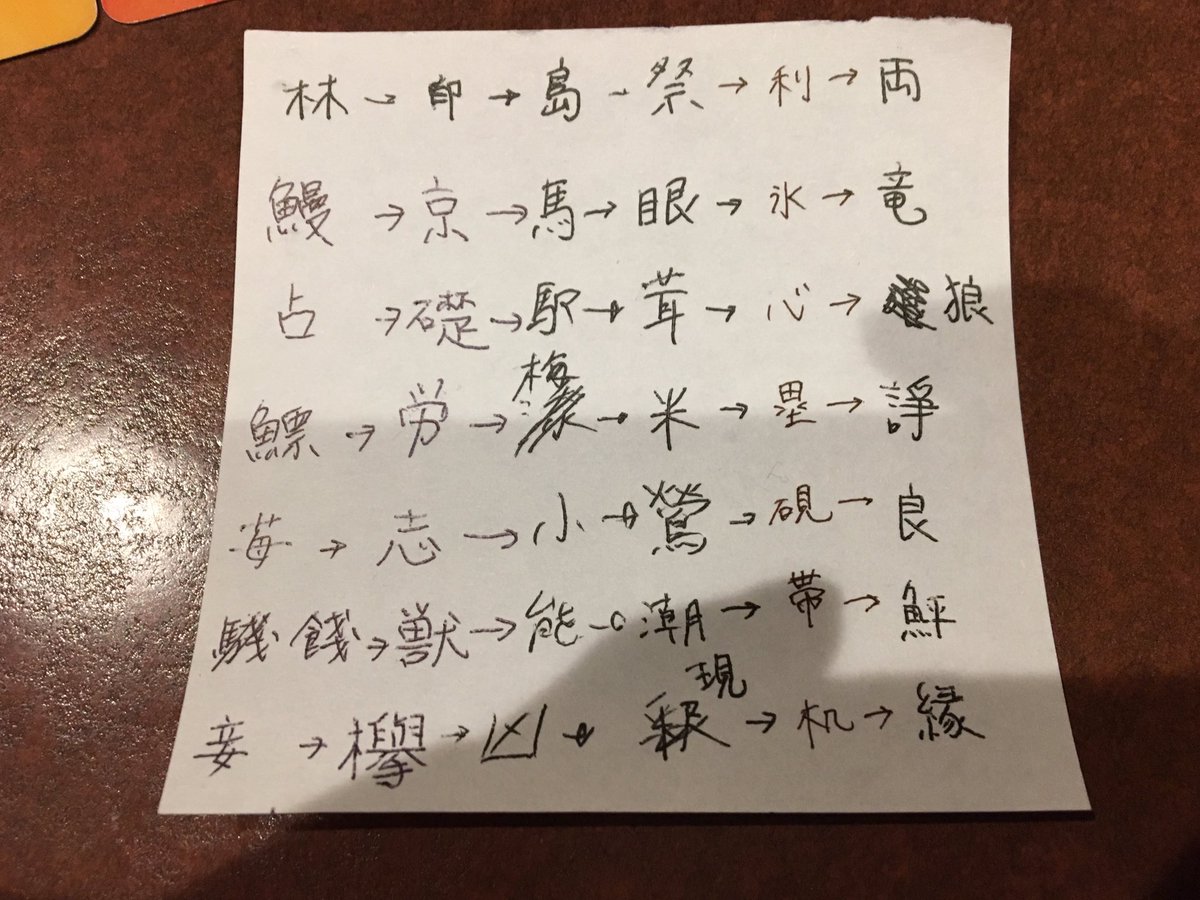 林→印→島→祭→利→両
鰻→京→馬→眼→氷→竜
占→礎→駅→茸→心→狼
鰾→労→梅→米→塁→諍
苺→志→小→鶯→硯→良
餞→獣→能→潮→帯→鮃
妾→欅→凶→現→机→縁